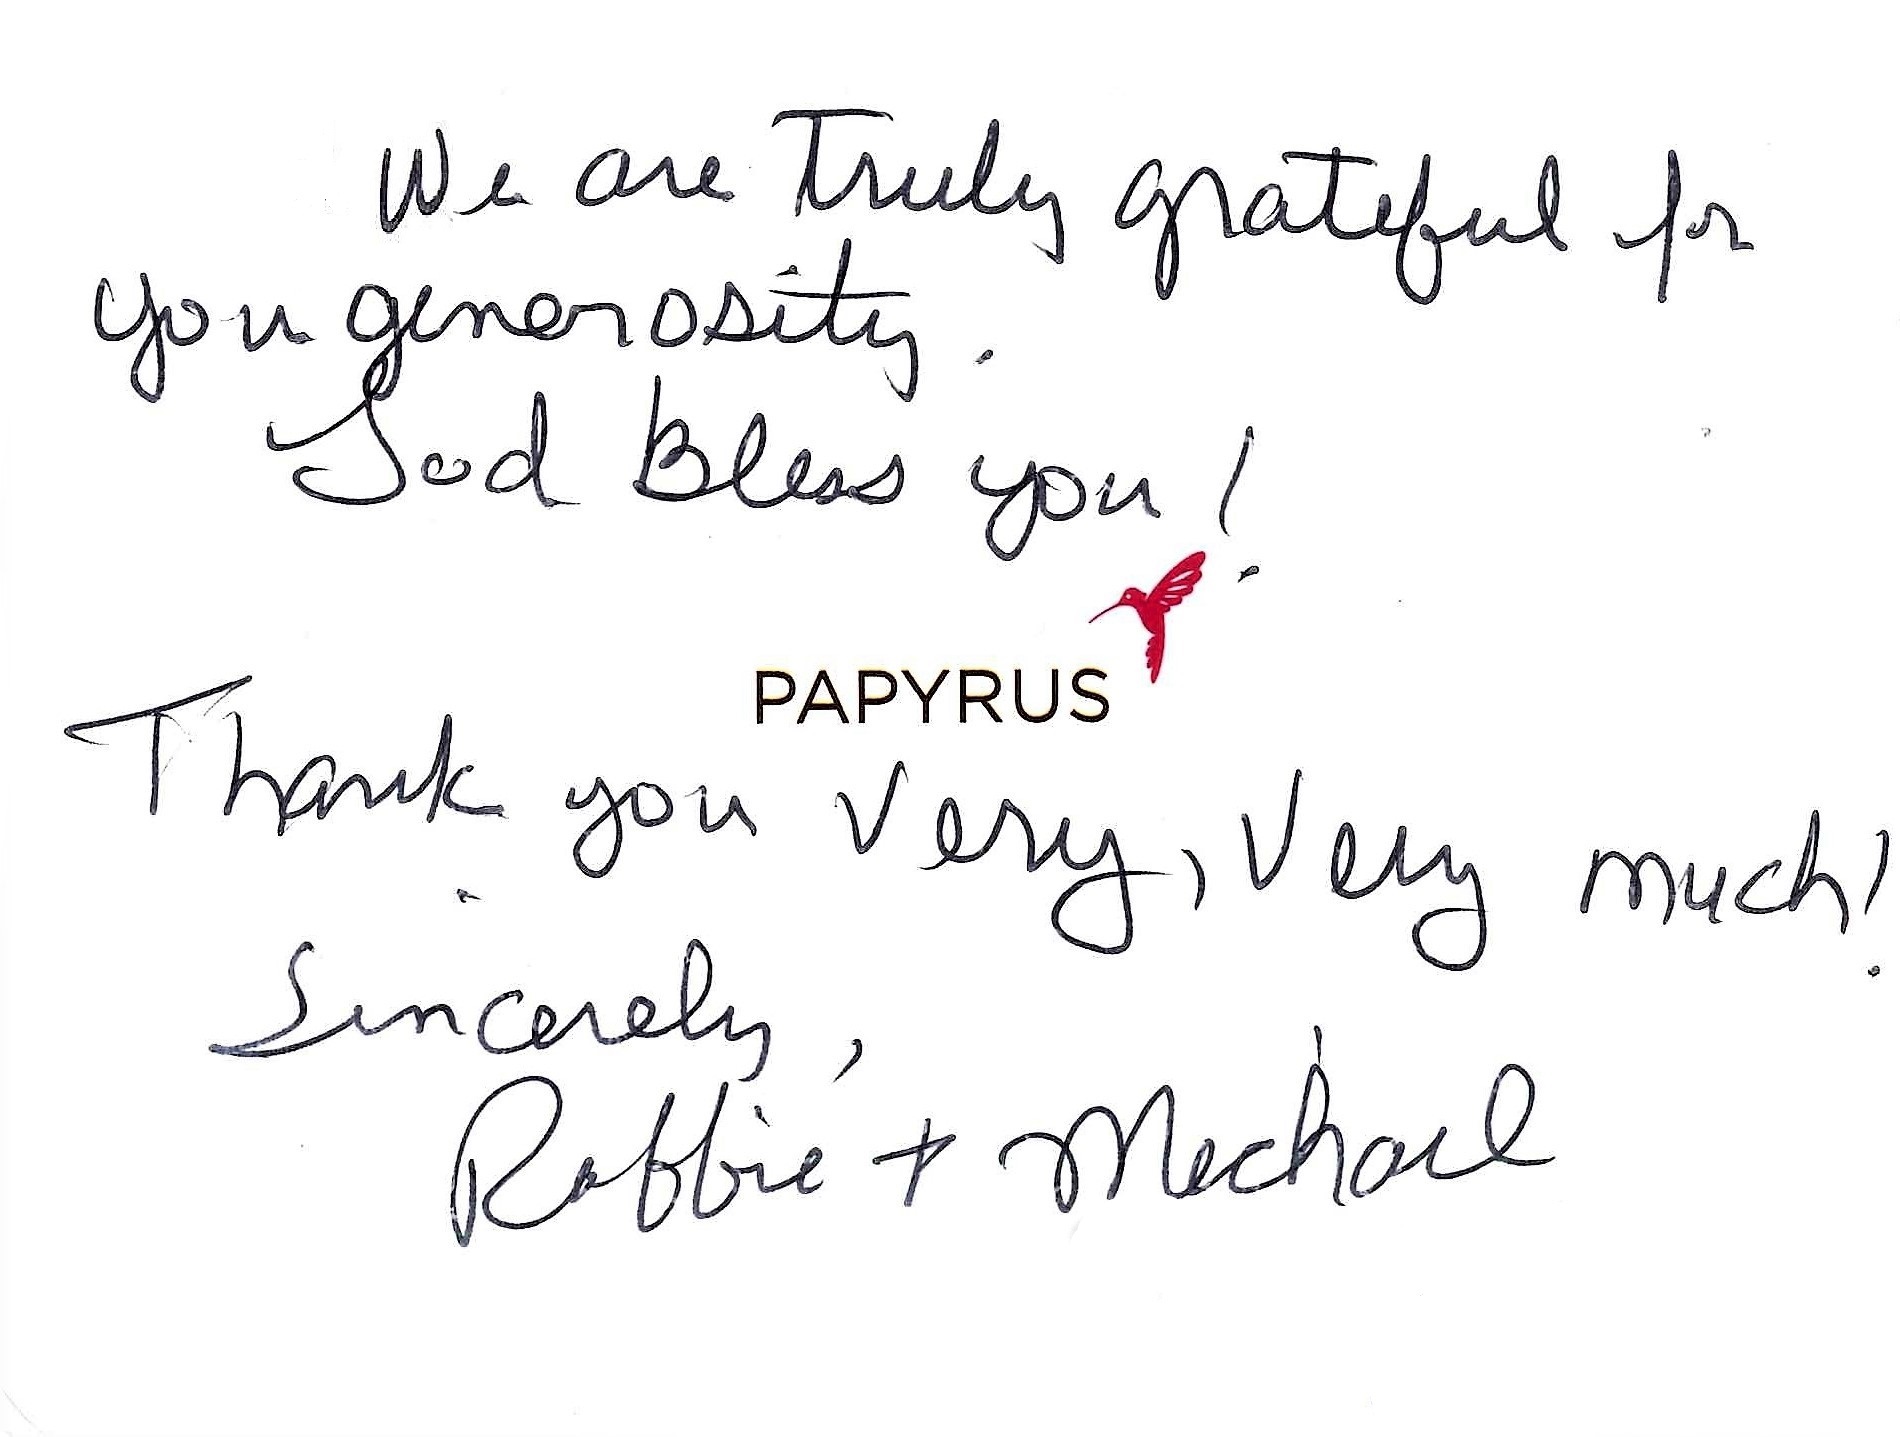 We are Truly grateful for
you generosity.
God Bless you!
PAPYRUS
Thank you Very, Very much!
Sincerely,
Robbie + Michael